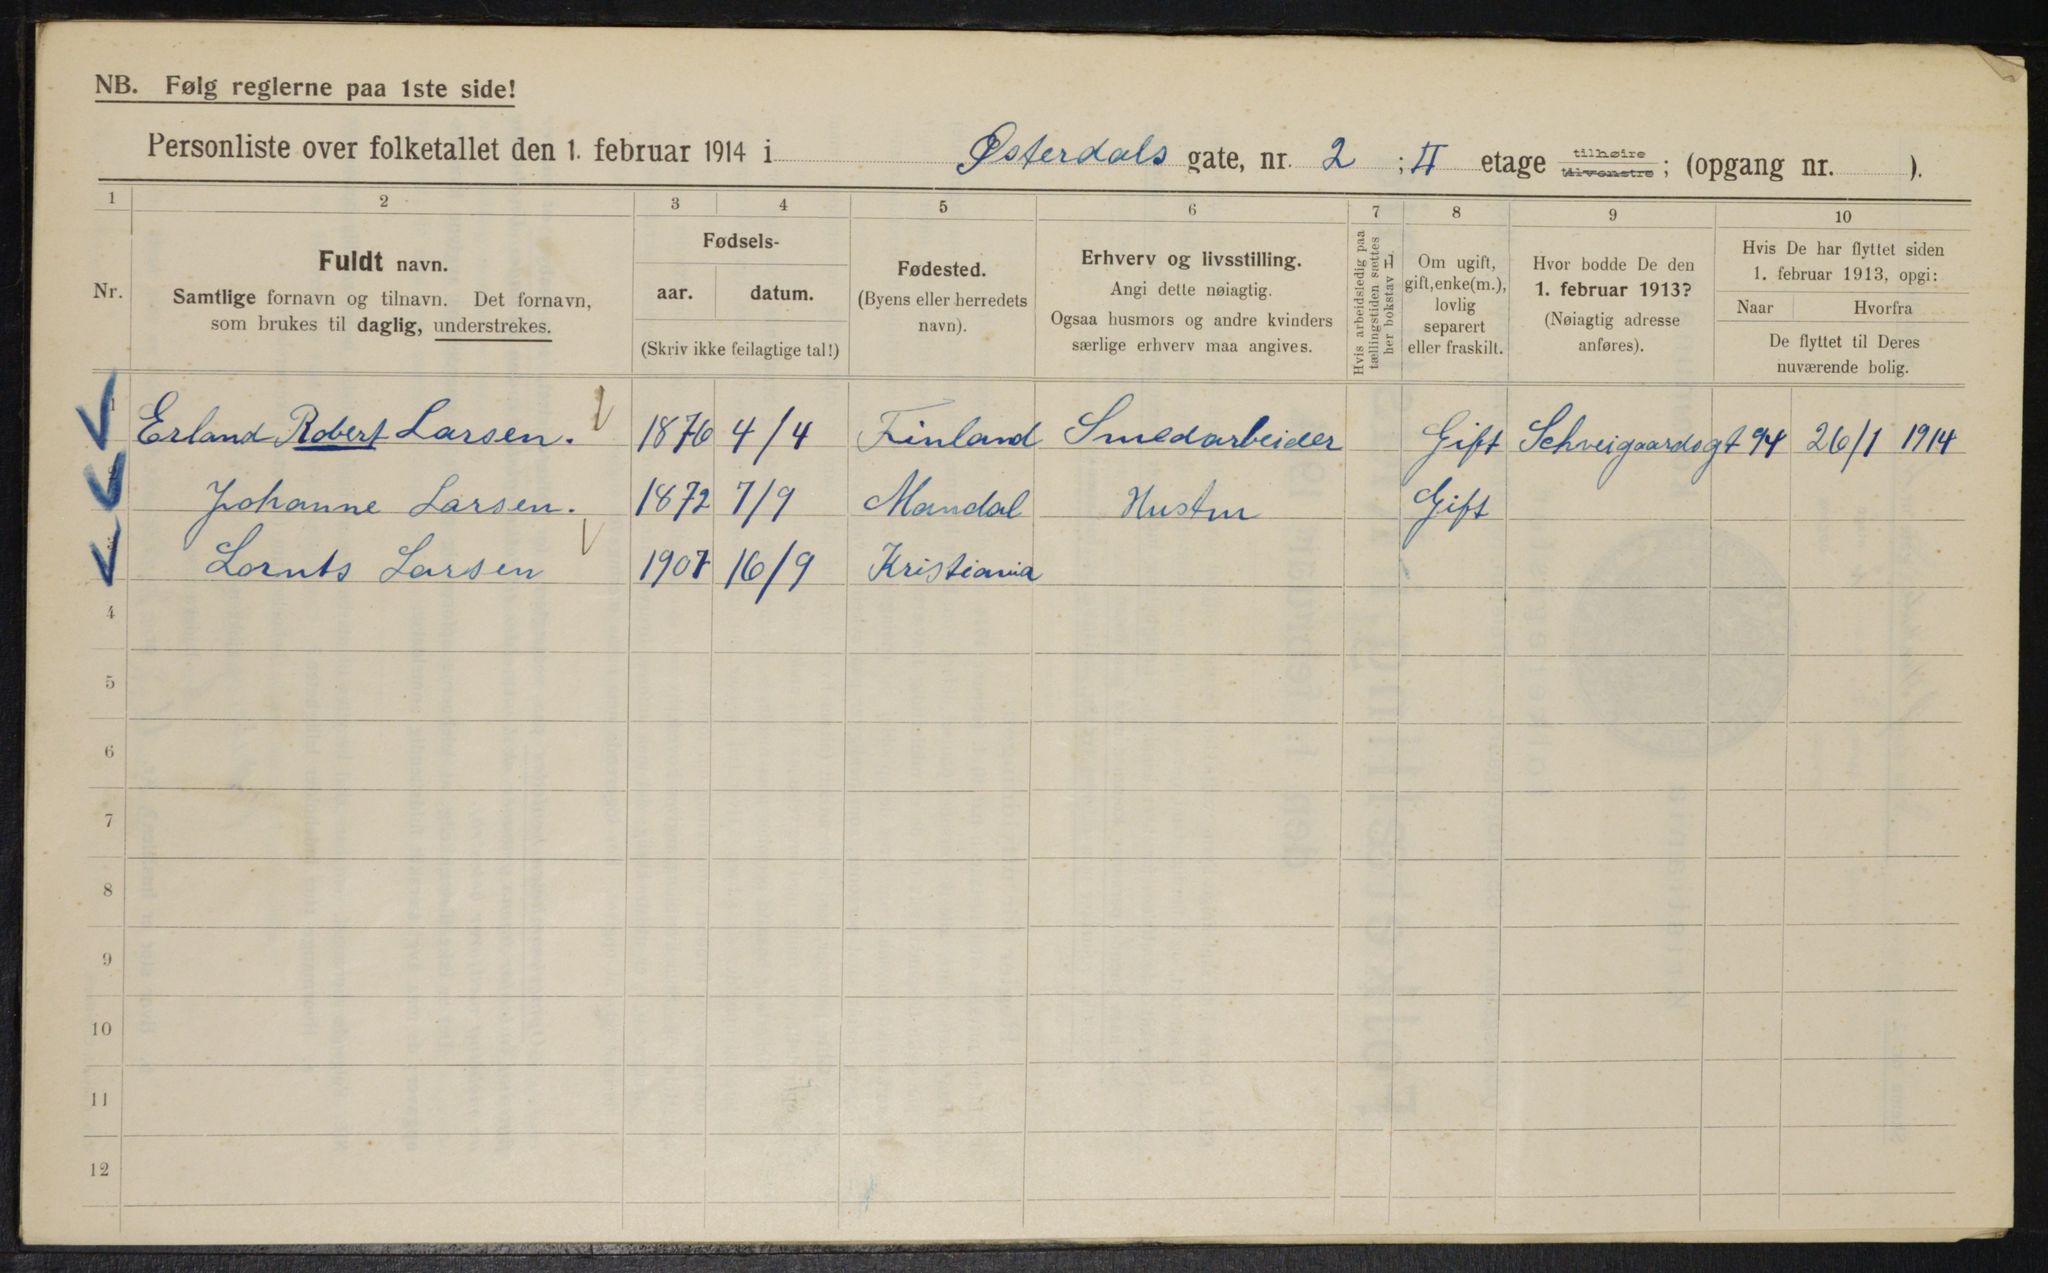 NB. Følg reglerne paa 1ste side!
Personliste over folketallet den 1. februar 1914 i Østerdals gate, nr. 2 ; II etage tilhøire tilvenstre ; (opgang nr. ).
1 2 3 4 5 6 7 8 9 10
Nr.
Fuldt navn.
Samtlige fornavn og tilnavn. Det fornavn,
som brukes til daglig, understrekes.
Fødsels-
aar. datum.
(Skriv ikke feilagtige tal!)
Fødested.
(Byens eller herredets
navn).
Erhverv og livsstilling.
Angi dette nøiagtig.
Ogsaa husmors og andre kvinders
særlige erhverv maa angives.
Hvis arbeidsledig paa
tællingstiden sættes
her bokstav L
Om ugift,
gift, enke(m.),
lovlig
separert
eller fraskilt.
Hvor bodde De den
1. februar 1913?
(Nøiagtig adresse
anføres).
Hvis De har flyttet siden
1. februar 1913, opgi:
Naar Hvorfra
De flyttet til Deres
nuværende bolig.
1 Erland Robert Larsen. 1876 4/4 Finland Smedarbeider Gift Schveigaardsgt 94 26/1 1914
Johanne Larsen. 1872 7/9 Mandal Hustru Gift
Lornts Larsen 1907 16/9 Kristiania
4
5
6
7
8
9
10
11
12